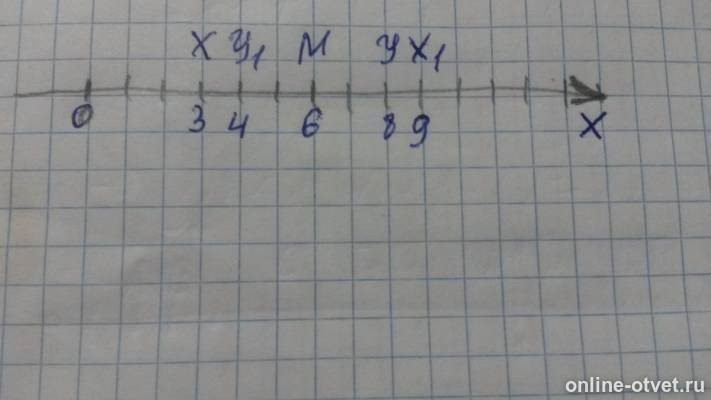 X У₁ М У X₁
0 3 4 6 8 9 X
online-otvet.ru